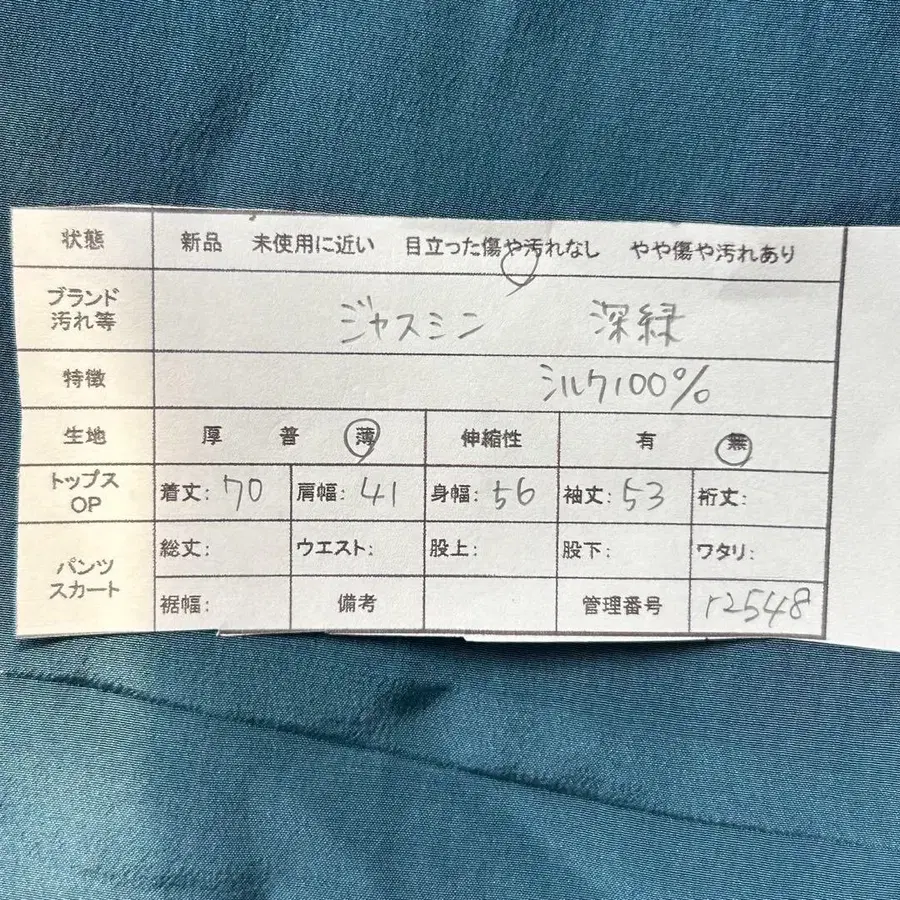 状態 新品 未使用に近い 目立った傷や汚れなし やや傷や汚れあり
ブランド
汚れ等 ジャスミン 深緑
特徴 シルク100%
生地 厚 普 薄 伸縮性 有 無
トップス
OP 着丈: 70 肩幅: 41 身幅: 56 袖丈: 53 裄丈:
パンツ
スカート 総丈: ウエスト: 股上: 股下: ワタリ:
裾幅: 備考 管理番号 r2548